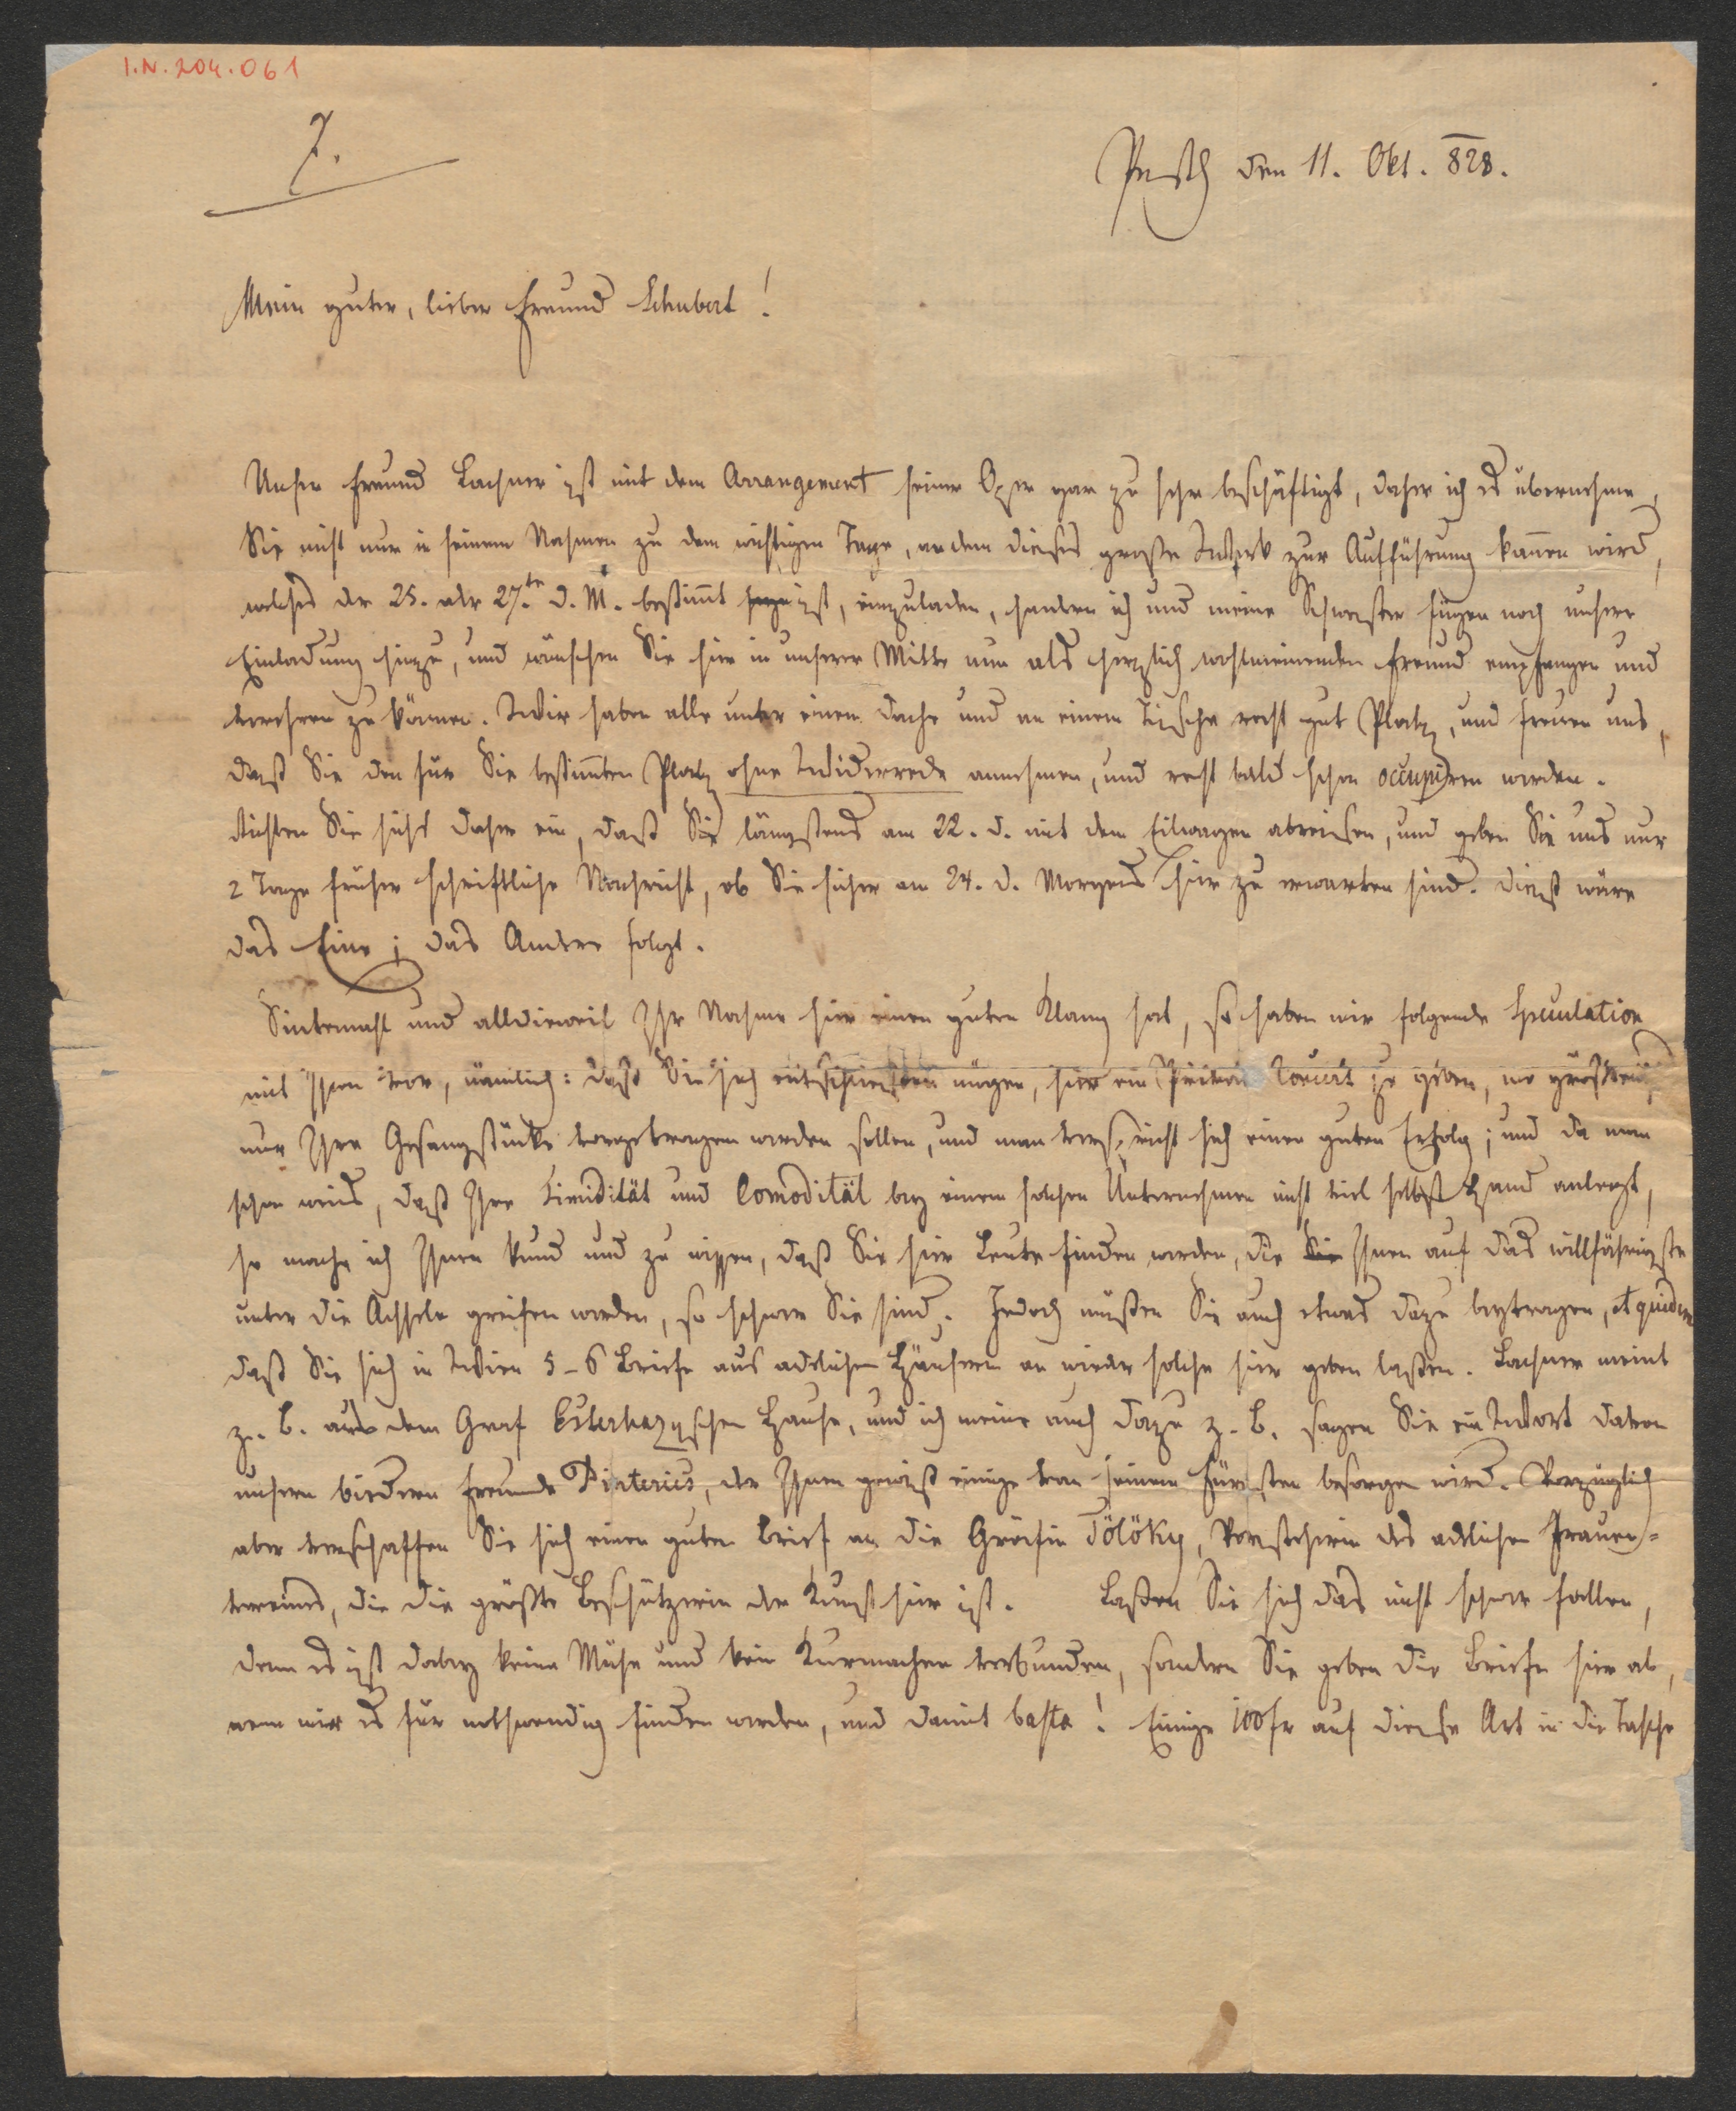 I.N. 204.061
7.
Pesth den 11. Okt. 828.
Mein guter, lieber Freund Schubert!
Unser Freund Lachner ist mit dem Arrangement seiner Oper gar zu sehr beschäftigt, daher ich es übernehme,
Sie nicht nur in seinem Nahmen zu dem wichtigen Tage, an dem dieses große Werk zur Aufführung kom̄en wird,
welches der 25. oder 27.te d. M. bestim̄t ist, einzuladen, sondern ich und meine Schwester fügen noch unsere
Einladung hinzu, und wünschen Sie hier in unserer Mitte nun als herzlich wohlmeinenden Freund empfangen und
verehren zu können. Wir haben alle unter einem Dache und an einem Tische recht gut Platz, und freuen uns,
daß Sie den für Sie bestim̄ten Platz ohne Widerrede annehmen, und recht bald schon occupiren werden.
Richten Sie sichs daher ein, daß Sie längstens am 22. d. mit dem Eilwagen abreisen, und geben Sie uns nur
2 Tage früher schriftliche Nachricht, ob Sie sicher am 24. d. Morgens hier zu erwarten sind. Dieß wäre
das Eine; das Andere folgt.
Sintemahl und alldieweil Ihr Nahme hier einen guten Klang hat, so haben wir folgende Speculation
mit Ihnen vor, nämlich: daß Sie sich entschließen mögen, hier ein Privat Concert zu geben, wo größtentheils
nur Ihre Gesangstücke vorgetragen werden sollen, und man verspricht sich einen guten Erfolg; und da man
schon weis, daß Ihre Timidität und Comodität bey einem solchen Unternehmen nicht viel selbst Hand anlegt,
so mache ich Ihnen kund und zu wissen, daß Sie hier Leute finden werden, die Sie Ihnen auf das willfährigste
unter die Achseln greifen werden, so schwer Sie sind. Jedoch müßen Sie auch etwas dazu beytragen, et quidem
daß Sie sich in Wien 5-6 Briefe aus adelichen Häusern an wieder solche hier geben laßen. Lachner meint
z. B. aus dem Graf Esterhazyschen Hause, und ich meine auch dazu z. B. sagen Sie ein Wort davon
unsern biedern Freunde Pinterics, der Ihnen gewiß einige von seinem Fürsten besorgen wird. Vorzüglich
aber verschaffen Sie sich einen guten Brief an die Gräfin Tölöky, Vorsteherin des adlichen Frauen-
vereines, die die größte Beschützerin der Kunst hier ist. Laßen Sie sich das nicht schwer fallen,
denn es ist dabey keine Mühe und kein Kurmachen verbunden, sondern Sie geben die Briefe hier ab,
wenn wir es für nothwendig finden werden, und damit basta! Einige 100 fr auf diese Art in die Tasche